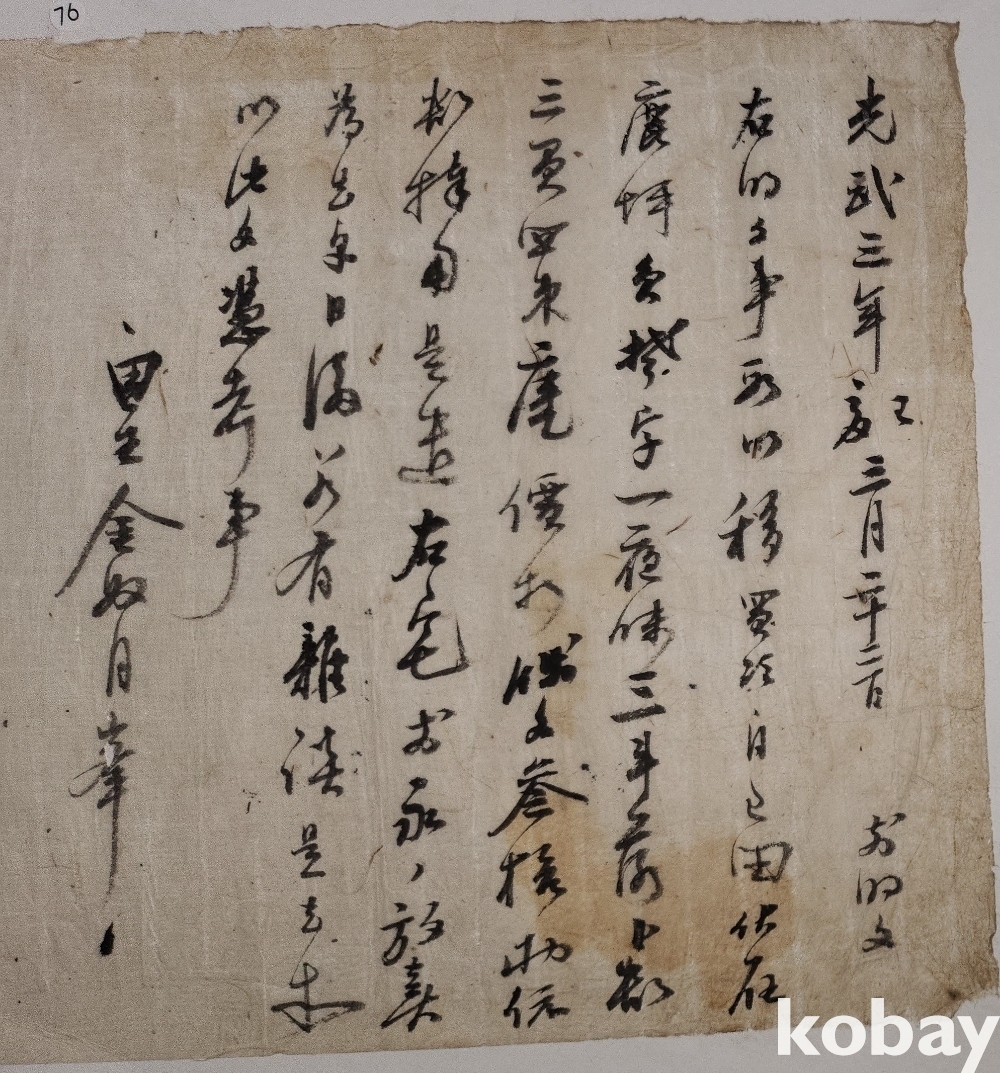 76
光武三年 己亥 三月二十二日 前明文
右明文事段以移買次自己田伏在
坪員 字一夜味三斗落卜數
三負四束庅價折錢文參拾兩依
數捧用是遣右宅前永永放賣
爲去乎日後若有雜談是去
以此文憑考事
田主金奴月
kobay